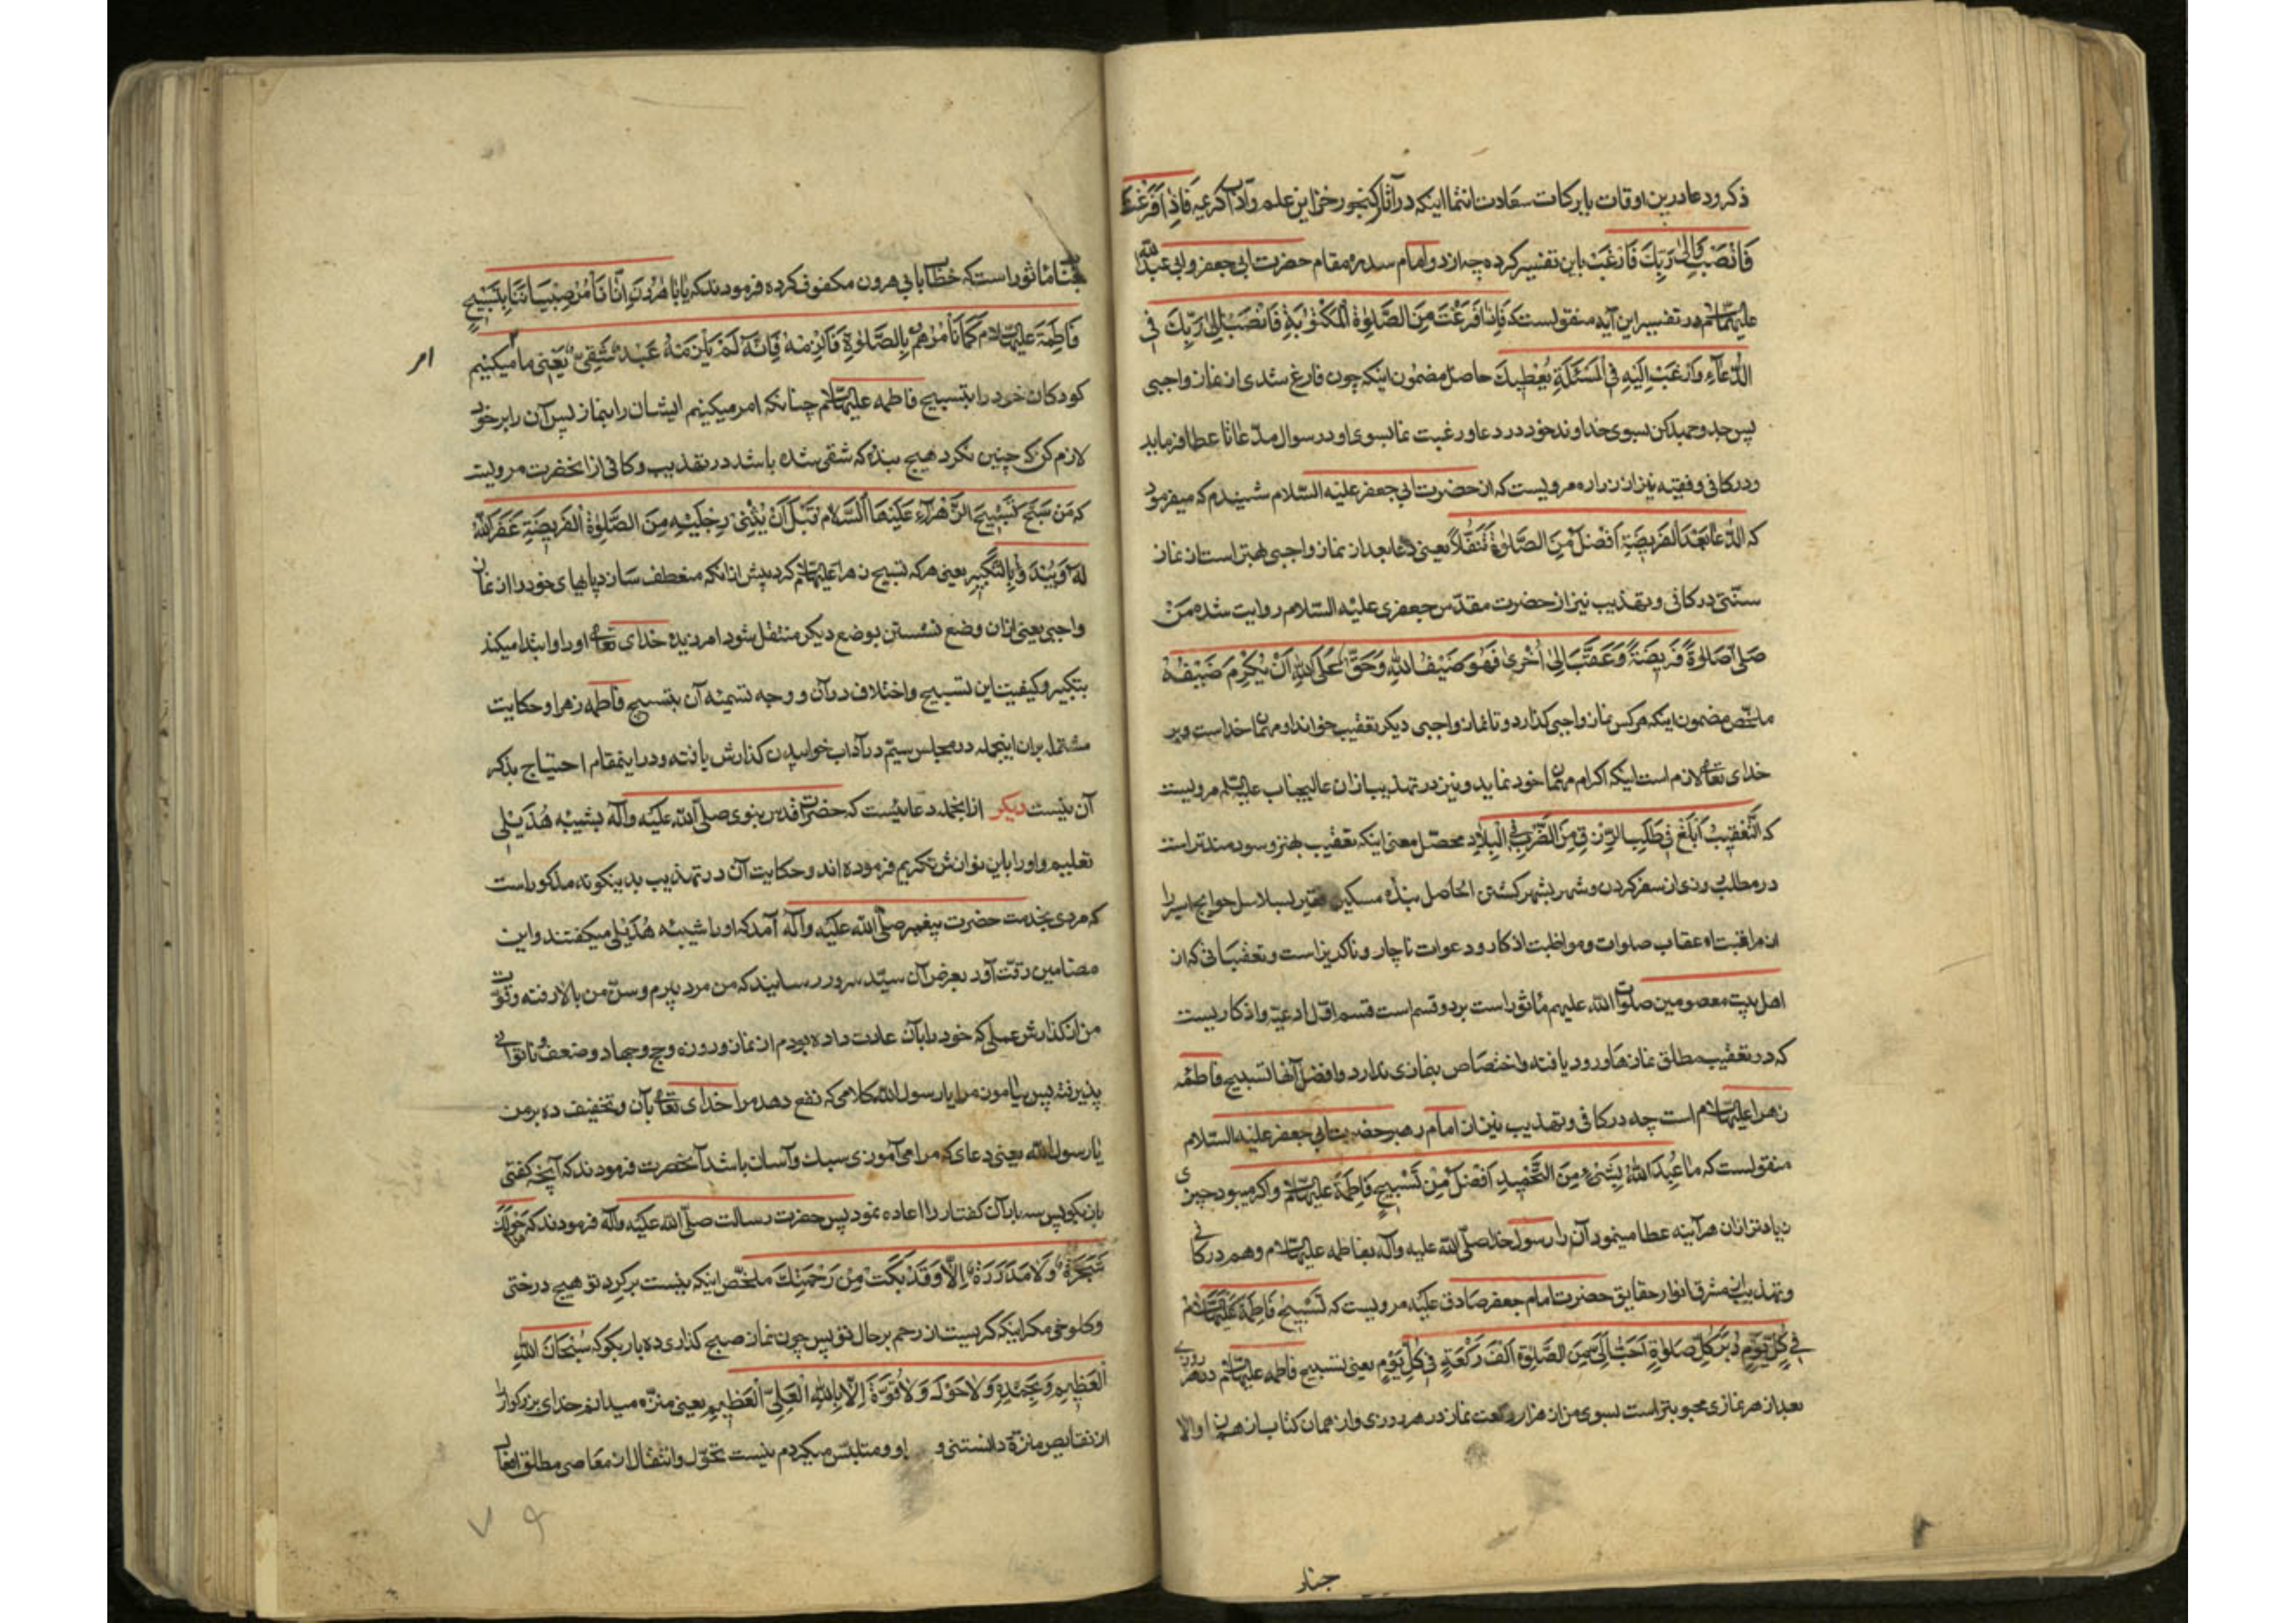 ذکر و دعا درین اوقات بابرکات سعادت انتما اینکه در آثار کنجور خزاین علم و آداب کریمه فَاِذٰا فَرَغْتَ
فَانْصَبْ وَاِلیٰ رَبِّکَ فَارْغَبْ باین تفسیر کرده چه از دو امام سدره مقام حضرت ابی جعفر و ابی عبدالله
علیهماالسلام در تفسیر این آیه منقولست که فَاِذٰا فَرَغْتَ مِنَ الصَّلوٰةِ الْمَکْتُوْبَةِ فَانْصَبْ اِلیٰ رَبِّکَ فِی
الدُّعٰآءِ وَارْغَبْ اِلَیْهِ فِی الْمَسْئَلَةِ یُعْطِیكَ حاصل مضمون اینکه چون فارغ شدی از نماز واجبی
پس جد و جهد کن بسوی خداوند خود در دعا و رغبت نما بسوی او در سوال مدّعا تا عطا فرماید
و در کافی و فقیه نیز از زراره مرویست که از حضرت ابی جعفر علیه السّلام شنیدم که میفرمود
که الدُّعٰا بَعْدَ الْفَرِیضَةِ اَفْضَلُ مِنَ الصَّلوٰةِ تَنَفُّلاً یعنی دعا بعد از نماز واجبی بهتر است از نماز
سنّتی در کافی و تهذیب نیز از حضرت مقدّس جعفری علیه السّلام روایت شده مَنْ
صَلّیٰ صَلوٰةً فَرِیضَةً وَعَقَّبَ اِلیٰ اُخْریٰ فَهُوَ ضَیْفُ اللّٰهِ وَحَقٌّ عَلَی اللّٰهِ اَنْ یُکْرِمَ ضَیْفَهُ
ملخّص مضمون اینکه هر کس نماز واجبی کذارد و تا نماز واجبی دیکر تعقیب خواند او مهمان خداست و بر
خدای تعالی لازم است اینکه اکرام مهمان خود نماید و نیز در تهذیب از آن عالیجناب علیه السلام مرویست
که اَلتَّعْقِیْبُ اَبْلَغُ فِی طَلَبِ الرِّزْقِ مِنَ الضَّرْبِ فِی الْبِلٰادِ محصّل معنی اینکه تعقیب بهتر و سودمندتر است
در مطلب روزی از سفر کردن و شهر بشهر کشتن الحاصل بنده مسکین فقیر بسلاسل حوایج اسیر را
از مراقبت اعقاب صلوات و مواظبت اذکار و دعوات ناچار و ناکزیر است و تعقیباتی که از
اهل بیت معصومین صلوات الله علیهم ماثور است بر دو قسم است قسم اوّل ادعیه و اذکاریست
که در تعقیب مطلق نمازها ورود یافته و اختصاص بنمازی ندارد و افضل آنها تسبیح فاطمه
زهرا علیهاالسلام است چه در کافی و تهذیب نیز از امام رهبر حضرت ابی جعفر علیه السّلام
منقولست که مٰا عُبِدَ اللّٰهُ بِشَیْءٍ مِنَ التَّحْمِیدِ اَفْضَلَ مِنْ تَسْبِیحِ فَاطِمَةَ علیهاالسلام و اکر میبود چیزی
زیاده تر از آن هرآینه عطا مینمود آن را رسول خدا صلّی الله علیه وآله بفاطمه علیهاالسلام و هم در کافی
و تهذیب از مشرق انوار حقایق حضرت امام جعفر صادق علیه مرویست که تَسْبِیحُ فَاطِمَةَ عَلَیْهَاالسَّلام
فِی کُلِّ یَوْمٍ دُبُرَ کُلِّ صَلوٰةٍ اَحَبُّ اِلَیَّ مِنَ الصَّلوٰةِ اَلْفَ رَکْعَةٍ فِی کُلِّ یَوْمٍ یعنی تسبیح فاطمه علیهاالسلام در هر روزی
بعد از هر نمازی محبوبتر است بسوی من از هزار رکعت نماز در هر روزی و از همان کتاب از همان والا
جناب
جناب ماثور است که خطاب بابی هرون مکفوف کرده فرمودند که یٰا بٰا هٰرُونَ اِنّٰا نَأْمُرُ صِبْیٰانَنٰا بِتَسْبِیحِ
فَاطِمَةَ علیهاالسلام کَمٰا نَأْمُرُهُمْ بِالصَّلوٰةِ فَالْزِمْهُ فَاِنَّهُ لَمْ یَلْزَمْهُ عَبْدٌ شَقِیٌّ یعنی ما میکنیم
امر
کودکان خود را بتسبیح فاطمه علیهاالسلام چنانکه امر میکنیم ایشان را بنماز پس آن را بر خود
لازم کن که چنین نکرد هیچ بنده که شقی شده باشد در تهذیب و کافی از آنحضرت مرویست
که مَنْ سَبَّحَ تَسْبِیحَ الزَّهْرٰآءِ عَلَیْهَا السَّلٰامُ قَبْلَ اَنْ یُثْنِیَ رِجْلَیْهِ مِنَ الصَّلوٰةِ الْفَرِیضَةِ غَفَرَ اللّٰهُ
لَهُ وَیَبْدَأُ بِالتَّکْبِیرِ یعنی هر که تسبیح زهرا علیهاالسلام کرد پیش از آنکه منعطف سازد پاهای خود را از نماز
واجبی یعنی از آن وضع نشستن بوضع دیکر منتقل شود امرزیده خدای تعالی او را و ابتدا میکند
بتکبیر و کیفیت این تسبیح و اختلاف در آن و وجه تسمیه آن بتسبیح فاطمه زهرا و حکایت
مشتمله بر آن اینجمله در مجلس سیّم در آداب خوابیدن کذارش یافته و در اینمقام احتیاج بذکر
آن نیست دیکر از آنجمله دعائیست که حضرت اقدس نبوی صلّی الله علیه وآله بشیبه هُذَیلی
تعلیم و او را باین نوازش تکریم فرموده اند و حکایت آن در تهذیب بدینکونه مذکور است
که مردی بخدمت حضرت پیغمبر صلّی الله علیه وآله آمد که او را شیبه هُذَیلی میکفتند و این
مضامین رقّت آور بعرض آن سیّد سرور رسانید که من مرد پیرم و سنّ من بالا رفته و قوّت
من از کذارش عملی که خود را بآن عادت داده بودم از نماز و روزه و حج و جهاد و ضعف و ناتوانی
پذیرفته پس بیاموز مرا یا رسول الله کلامی که نفع دهد مرا خدای تعالی بآن و تخفیف ده بر من
یا رسول الله یعنی دعای که مرا می آموزی سبك و آسان باشد آنحضرت فرمودند که آنچه کفتی
بازکو پس سه بار آن کفتار را اعاده نمود پس حضرت رسالت صلّی الله علیه وآله فرمودند که مٰا حَوْلَكَ
شَجَرَةٌ وَلٰا مَدَرَةٌ اِلّٰا وَقَدْ بَکَتْ مِنْ رَحْمَتِكَ ملخّص اینکه نیست بر کرد تو هیچ درختی
و کلوخی مکر اینکه کریست از رحم بر حال تو پس چون نماز صبح کذاری ده بار بکو که سُبْحٰانَ اللّٰهِ
الْعَظِیمِ وَبِحَمْدِهِ وَلٰا حَوْلَ وَلٰا قُوَّةَ اِلّٰا بِاللّٰهِ الْعَلِیِّ الْعَظِیمِ یعنی منزّه میدانم خدای بزرکوار را
از نقایص منزّه دانستنی و او و متلبّس میکردم نیست تحوّل و انتقال از معاصی مطلق